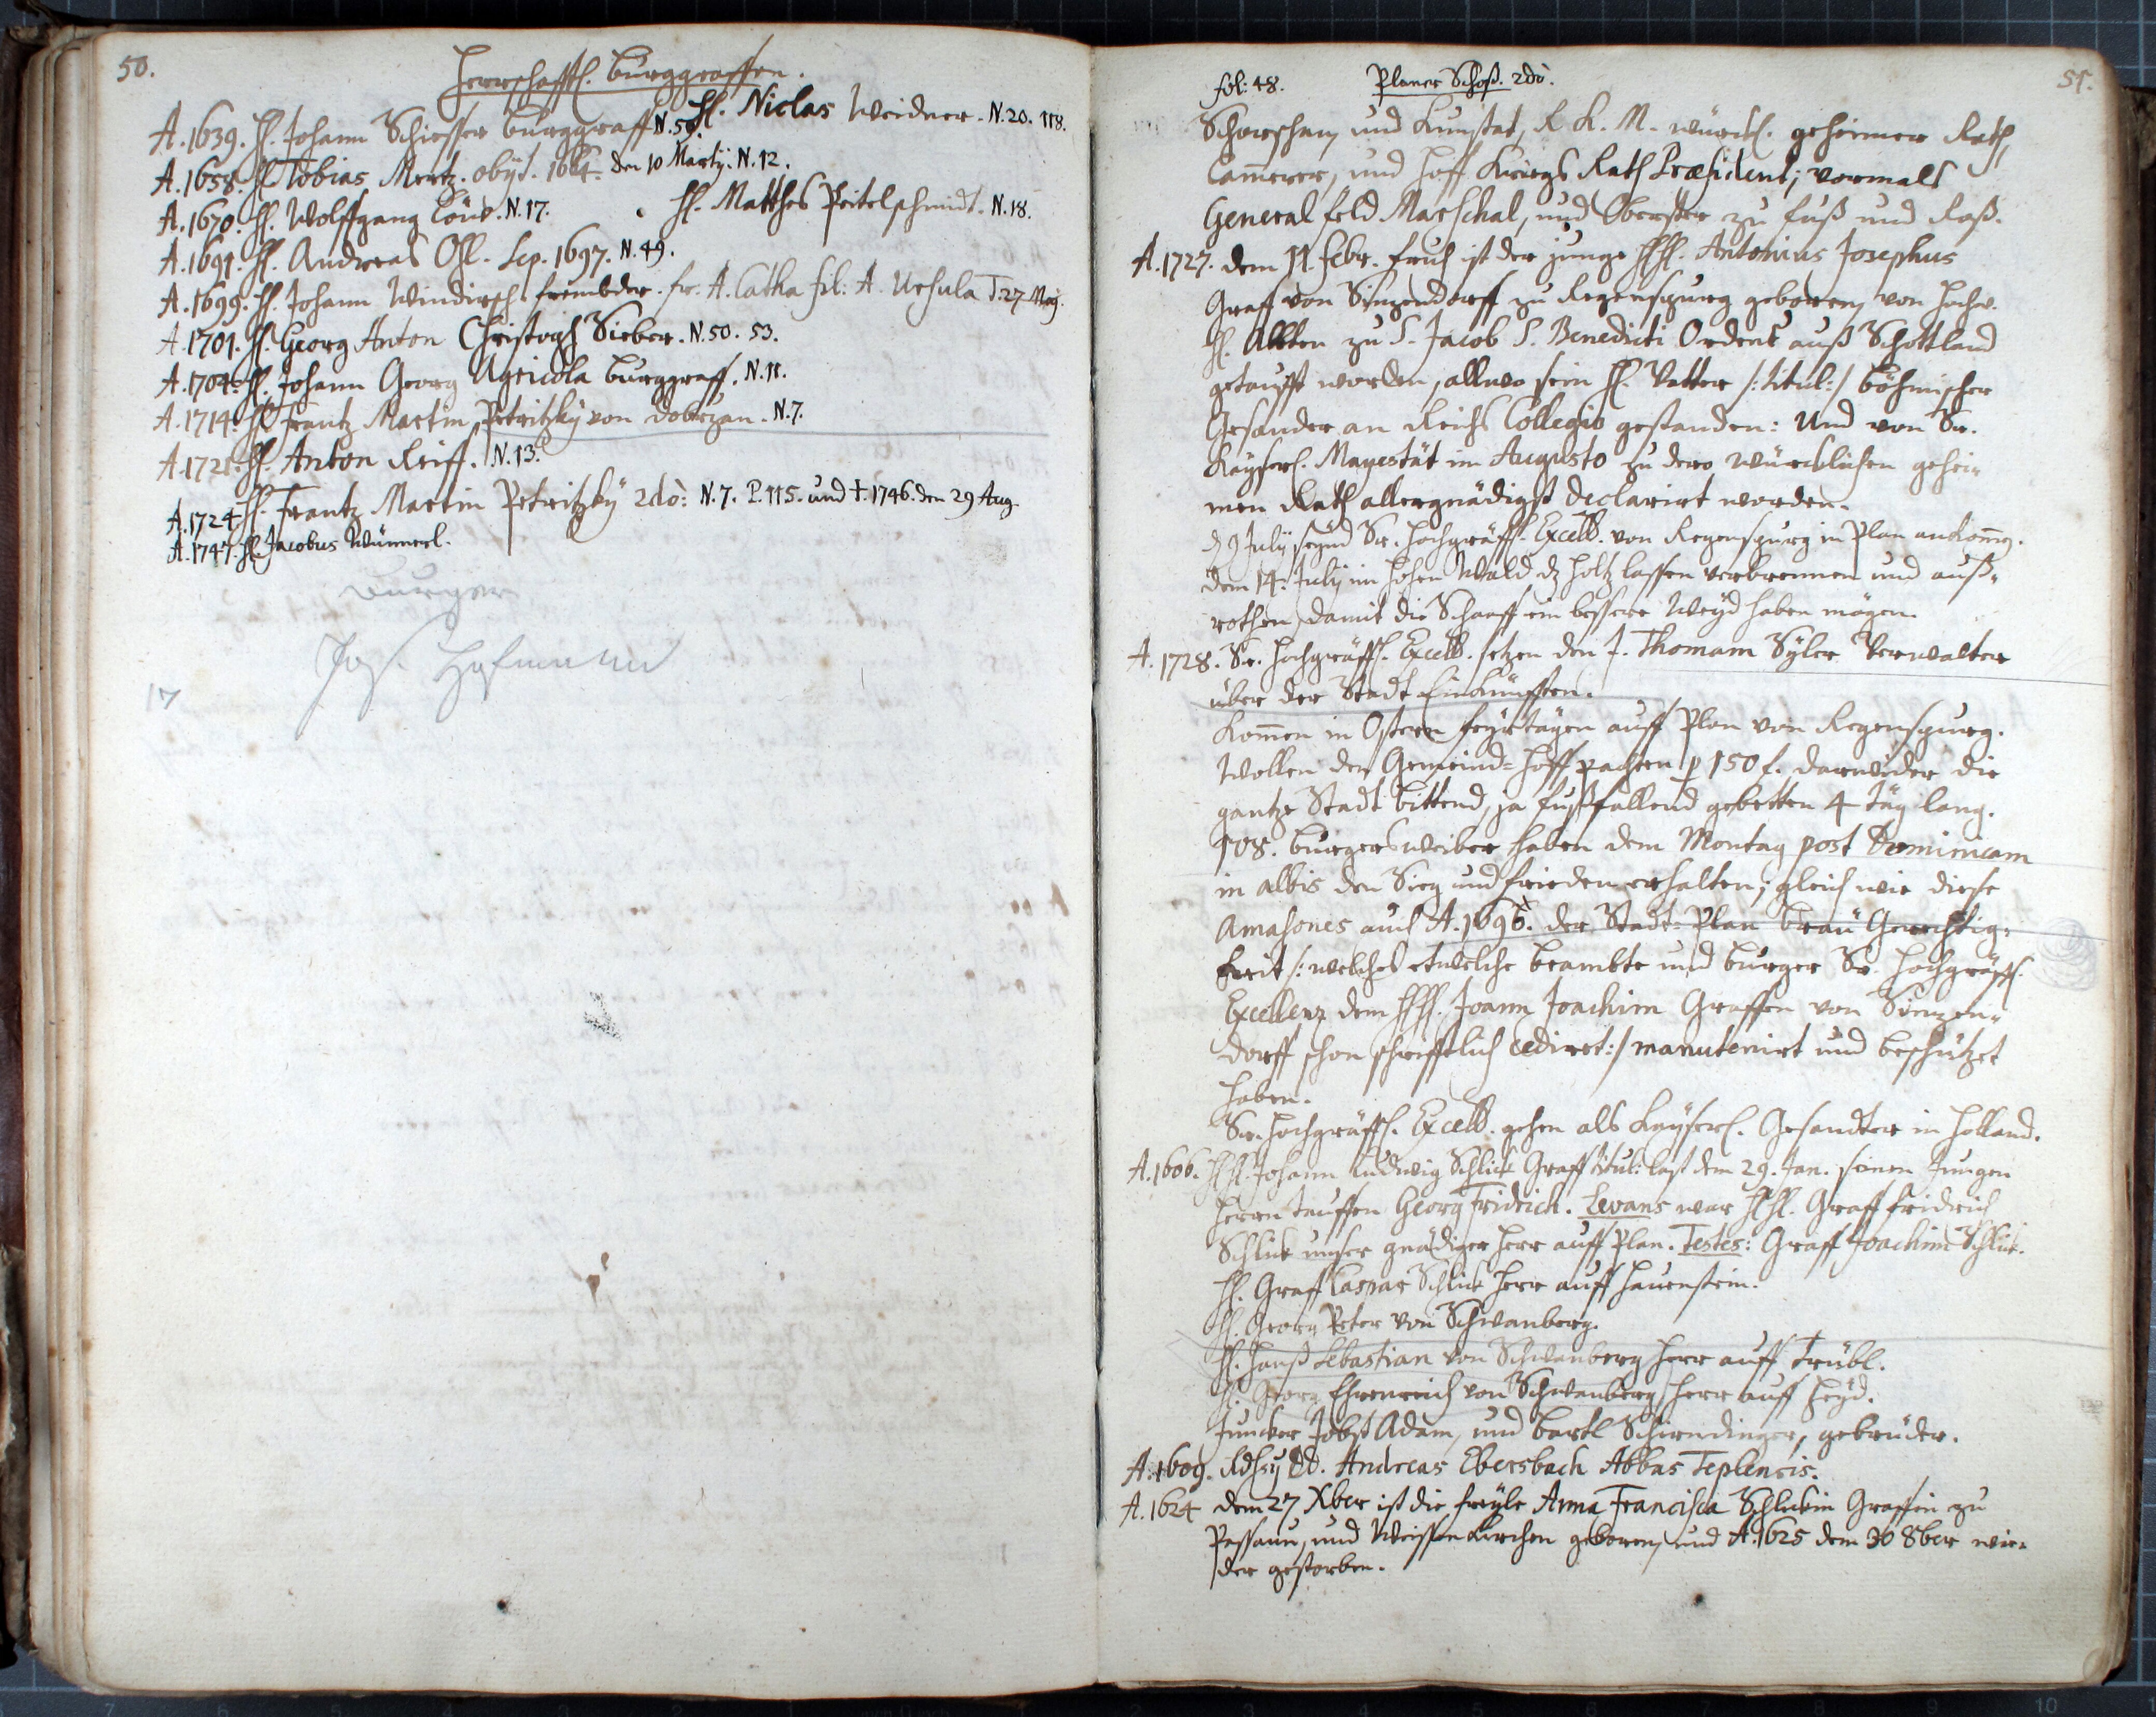 50.
Herrschafftl. Burggraffen.
A. 1639. H. Johann Schiesser Burggraff N. 50. H. Niclas Weidner. N. 20. 118.
A. 1658. H. Tobias Mertz. obijt. 1664. den 10 Martij. N. 12.
A. 1670. H. Wolffgang Löw. N. 17. H. Matthes Peitelschmidt. N. 18.
A. 1691. H. Andreas Ohl. Sep. 1697. N. 49.
A. 1699. H. Johann Windisch frembder. fr. A. Catha fil: A. Ursula T. 27 Maij.
A. 1701. H. Georg Anton Christoph Sieber. N. 50. 53.
A. 1704. H. Johann Georg Agricola Burggraff. N. 11.
A. 1714. H. Frantz Martin Petritzky von Dobrzan. N. 7.
A. 1721. H. Anton Reiff. N. 13.
A. 1724 H. Frantz Martin Petritzkÿ 2dò: N. 7. P. 115. und †. 1746. den 29 Aug.
A. 1747. H. Jacobus Wümmerl.
Burger
Jos. Hofmann
17
fol: 48. Planer Schoß. 2dò. 51.
und Kunstat, R. K. M. würckl. geheimer Rath,
Cammerer, und Hoff Kriegs Rath Præsident; vormals
General feld Marschal, und Obrister zu fuß und Roß.
A. 1727. dem 11. Febr. fruh ist der junge HH. Antonius Josephus
Graff von Sinzendorff zu Regenspurg geboren, von Hochw.
H. Abbten zu S. Jacob S. Benedicti Ordens auß Schottland
getaufft worden, allwo sein H. Vatter /: titul :/ böhmischer
Gesander an Reichs Collegio gestanden: Und von Sr.
Kayserl. Mayestät im Augusto zu dero würcklichen gehei-
men Rath allergnädigst declarirt worden.
d 9 Julij seynd Sr. Hochgräffl. Excell. von Regenspurg in Plan ankomen.
dem 14. Julij im hohen Wald dz holtz lassen verbrennen und auß-
rothen, damit die Schaaff ein bessere Weyd haben mögen.
A. 1728. Sr. Hochgräffl. Excell. setzen den J. Thomam Syler Verwalter
über der Stadt Einkünfften.
Kommen in Ostern feyrtägen auff Plan von Regenspurg.
Wollen den Gemeind-Hoff pachten p 150 f. darwider die
gantze Stadt bittend, ja fußfallend gebetten 4 täg lang.
108. Burgersweiber haben dem Montag post Dominicam
in albis den Sieg und frieden erhalten; gleich wie diese
Amasones auch A. 1696. der Stadt-Plan bräu Gerechtig-
keit /: welches etwelche beambte und burger Sr. Hochgräffl.
Excellenz dem HH. Joann Joachim Graffen von Sinzen-
dorff schon schrifftlich cediret :/ manutenirt und beschützet
haben.
Sr. Hochgräffl. Excell. gehen als Kayserl. Gesandter in Holland.
A. 1606. HH. Johann Ludwig Schlick Graff titul: last dem 29. Jan. seinen Jungen
Herrn tauffen Georg Fridrich. Levans war HH. Graff Fridrich
Schlick unser gnädiger Herr auff Plan. Testes: Graff Joachim Schlick.
H. Graff Caspar Schlick Herr auff Hauenstein.
H. Georg Peter von Schwanberg.
H. Hanß Sebastian von Schwanberg Herr auff Trübl.
H. Georg Ehrenreich von Schwanberg Herr auff Heÿd.
Juncker Jobst Adam, und Bartl Schirndinger, gebrüder.
A. 1609. DD. Andreas Ebersbach Abbas Teplensis.
A. 1624 dem 27 Xber ist die freyle Anna Francisca Schlickin Graffin zu
Passaun, und Weissenkirchen geboren, und A. 1625 dem 30 8ber wie-
der gestorben.